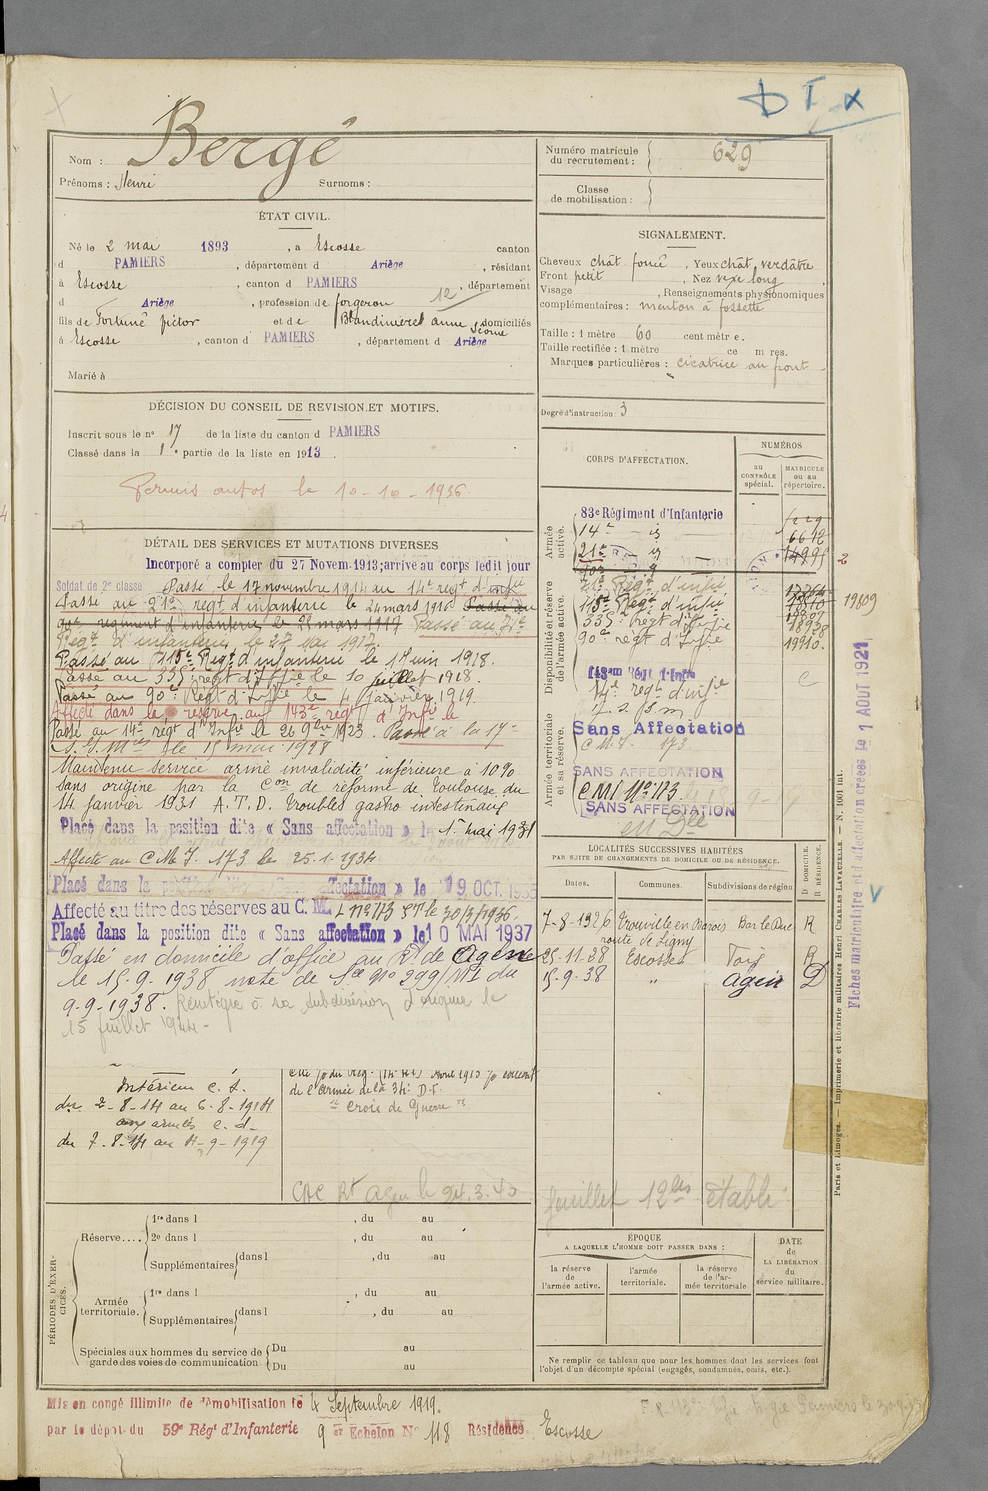 D I X
Nom : Bergé
Prénoms : Henri Surnoms :
ÉTAT CIVIL.
Né le 2 mai 1893, à Escosse canton
d PAMIERS, département d Ariège, résidant
à Escosse, canton d PAMIERS, département
d Ariège, profession de forgeron 12
fils de Fortuné et de Blandinières anne domiciliés
à Escosse, canton d PAMIERS, département d Ariège
Marié à
DÉCISION DU CONSEIL DE REVISION ET MOTIFS.
Inscrit sous le n° 17 de la liste du canton d PAMIERS
Classé dans la 1e partie de la liste en 1913.
Permis autos le 10-10-1936
DÉTAIL DES SERVICES ET MUTATIONS DIVERSES
Incorporé a compter du 27 Novem. 1913; arrivé au corps ledit jour
Soldat de 2e classe Passé le 17 novembre 1914 au 14e regt d'infie
Passé au 21e regt d'infanterie le 24 mars 1916 Passé au
90e regiment d'infanterie le 28 mars 1917 Passé au 21e
Regt d'infanterie le 27 mai 1917.
Passé au 115e Regt d'infanterie le 1 Juin 1918.
Passé au 335 regt d'Iffie le 10 juillet 1918.
Passé au 90e Regt d'Iffie le 4 Janvier 1919.
Affecté dans la réserve au 143e regt d'Infie le
Passé au 14e regt d'Infie le 26 9bre 1923. Passé à la 17e
S.I.M. le 15 mai 1928
Maintenu service armé invalidité inférieure à 10%
sans origine par la Con de réforme de Toulouse du
14 janvier 1931 A.T.D. troubles gastro intestinaux
Placé dans la position dite « Sans affectation » le 1er mai 1931
Affecté au C M I. 173 le 25.1.1934
Placé dans la position dite « Sans affectation » le 19 OCT. 1935
Affecté au titre des réserves au C. M. I n° 173 ST le 30/3/1936.
Placé dans la position dite « Sans affectation » le 10 MAI 1937
Passé en domicile d'office au Rt de Agen
le 15.9.1938 note de Sce N° 299/M1 du
9-9-1938. Réintègre à sa subdivision d'origine le
15 juillet 1944 -
Intérieur C. S.
du 2-8-14 au 6-8-1914
aux armées C. d-
du 7-8-14 au 4-9-1919
de l'Armée de la 34e D.I.
"Croix de Guerre"
CAC Rt Agen le 24.3.40
PÉRIODES D'EXERCICES.
Réserve.... 1re dans l , du au
2e dans l , du au
Supplémentaires dans l , du au
Armée territoriale. 1re dans l , du au
Supplémentaires dans l , du au
Spéciales aux hommes du service de garde des voies de communication Du au
Du au
Mis en congé illimité de démobilisation le 4 Septembre 1919.
par le dépôt du 59e Régt d'Infanterie 9 er Echelon N° 118 Résidence Escosse
Numéro matricule du recrutement : 629
Classe de mobilisation :
SIGNALEMENT.
Cheveux chât foncé, Yeux chât verdâtre
Front petit, Nez vexe long,
Visage , Renseignements physionomiques
complémentaires : menton à fossette
Taille : 1 mètre 60 centimètre.
Taille rectifiée : 1 mètre centimètres.
Marques particulières : cicatrice au front
Degré d'instruction : 3
CORPS D'AFFECTATION.
NUMÉROS
au CONTRÔLE spécial.
MATRICULE ou au répertoire.
Armée active.
83e Régiment d'Infanterie
14e
21e
Disponibilité et réserve de l'armée active.
21e Régt d'infie
115e Regt d'infie
335e Regt d'Infie
90e regt d'Infie
19809
19110
143em Régt d'Infie
14e regt d'infie
Armée territoriale et sa réserve.
Sans Affectation
C.M.I. 173
SANS AFFECTATION
C M I N° 173
SANS AFFECTATION
LOCALITÉS SUCCESSIVES HABITÉES
PAR SUITE DE CHANGEMENTS DE DOMICILE OU DE RÉSIDENCE.
Dates. Communes. Subdivisions de région D. DOMICILE. R. RÉSIDENCE.
7-8-1926 Trouville en Barrois Bar le Duc R
route de Ligny
25-11-28 Escosse Foix R
15-9-38 " Agen D
feuillet 12 bis établi
ÉPOQUE
A LAQUELLE L'HOMME DOIT PASSER DANS :
la réserve de l'armée active.
l'armée territoriale.
la réserve de l'armée territoriale
DATE de LA LIBÉRATION du service militaire.
Ne remplir ce tableau que pour les hommes dont les services font
l'objet d'un décompte spécial (engagés, condamnés, omis, etc.).
Paris et Limoges. — Imprimerie et librairie militaires Henri CHARLES-LAVAUZELLE. — N. 1001 int.
Fiches matriculaire et d'affectation créées le 1 AOUT 1921